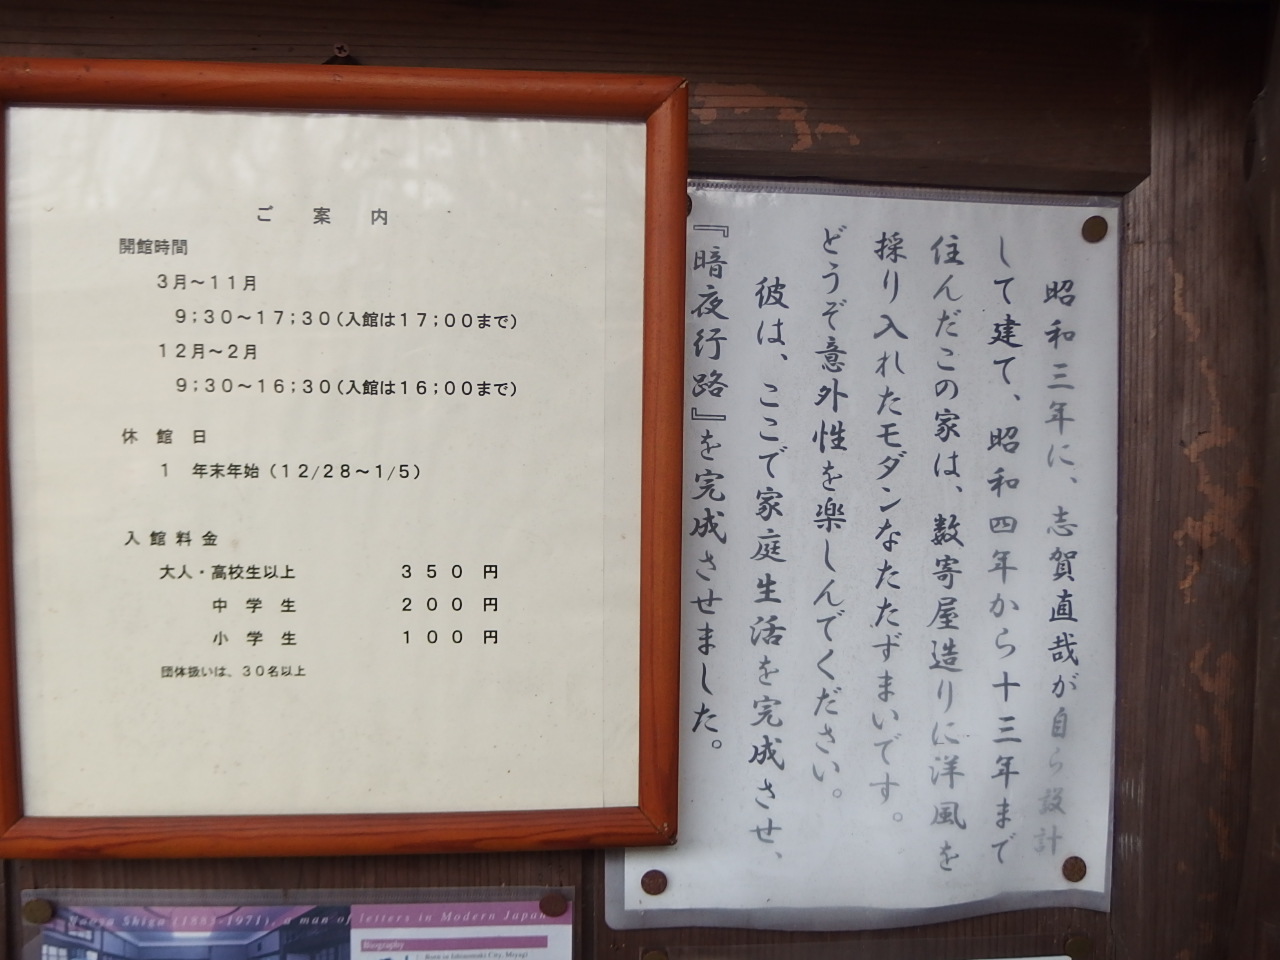 ご案内
開館時間
3月~11月
9;30~17;30(入館は17;00まで)
12月~2月
9;30~16;30(入館は16;00まで)
休館日
1 年末年始(12/28~1/5)
入館料金
大人・高校生以上 350円
中学生 200円
小学生 100円
団体扱いは、30名以上
昭和三年に、志賀直哉が自ら設計
して建て、昭和四年から十三年まで
住んだこの家は、数寄屋造りに洋風を
採り入れたモダンなたたずまいです。
どうぞ意外性を楽しんでください。
彼は、ここで家庭生活を完成させ、
『暗夜行路』を完成させました。
Naoya Shiga (1883-1971), a man of letters in Modern Japan
Biography
Born in Ishinomaki City, Miyagi